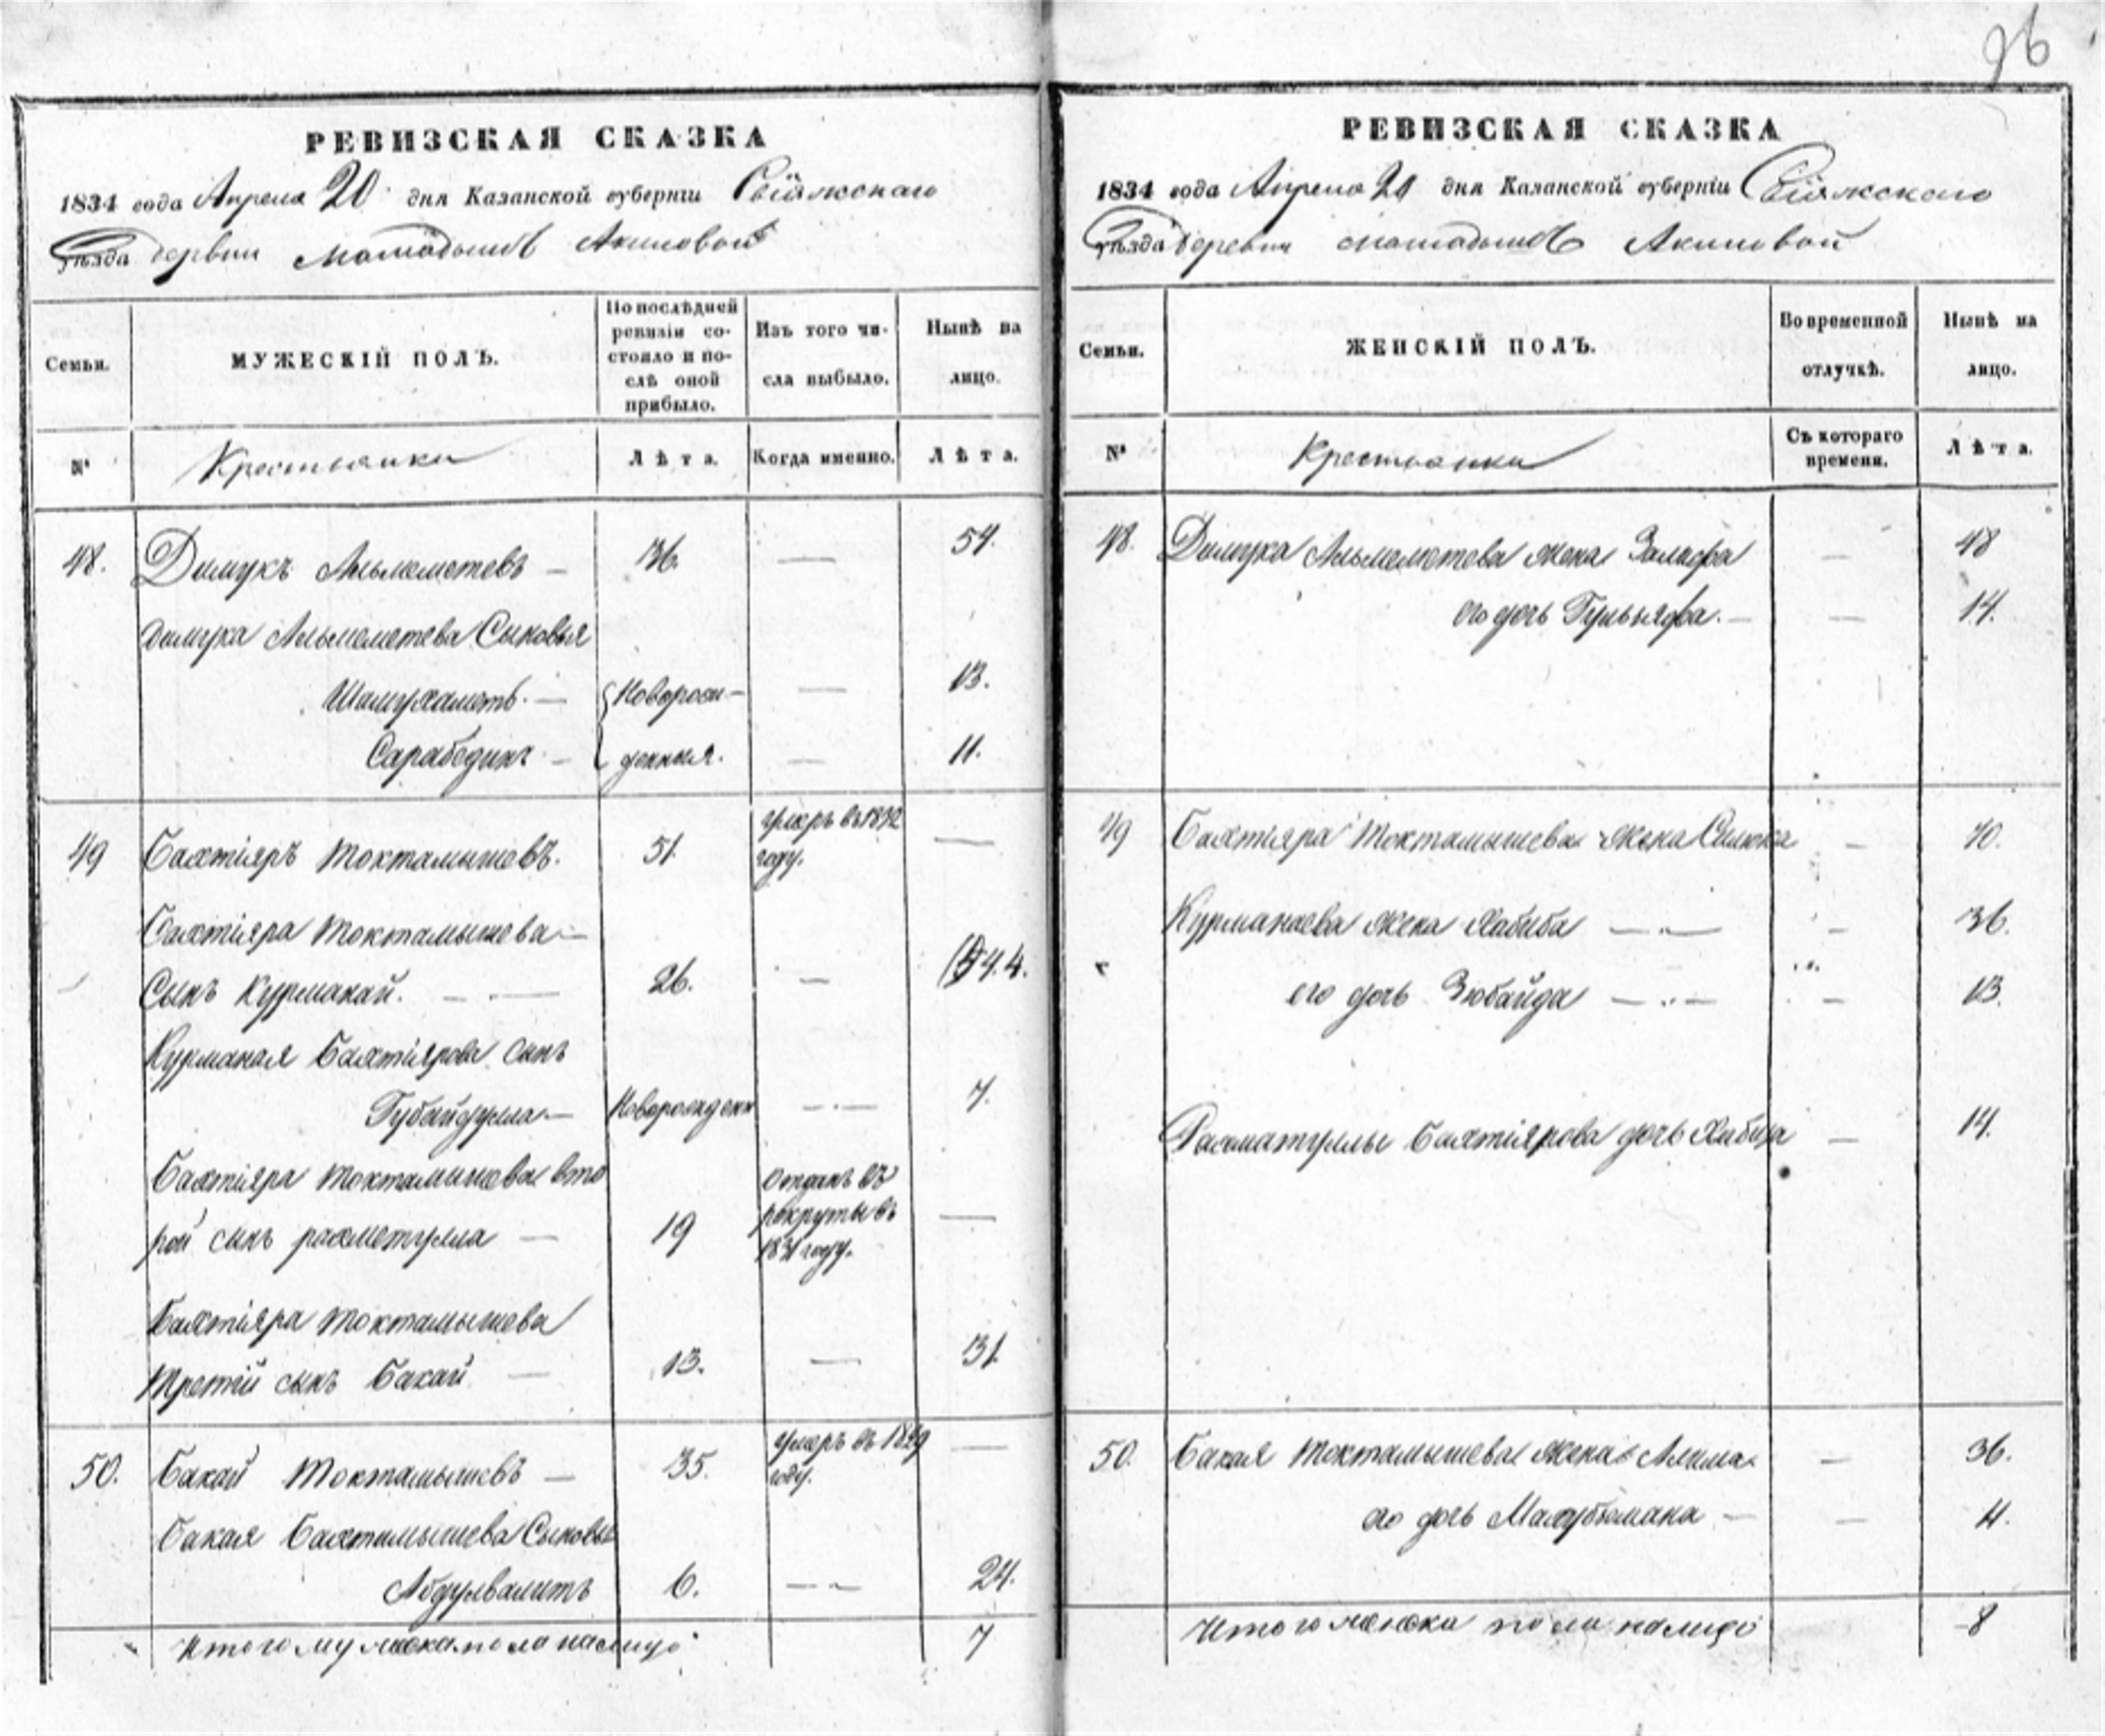 96
РЕВИЗСКАЯ СКАЗКА
1834 года Апреля 20 дня Казанской губерніи Свіяжскаго
уѣзда деревни Акиловой
Семьи.
МУЖЕСКІЙ ПОЛЪ.
По послѣдней ревизіи состояло и послѣ оной прибыло.
Изъ того числа выбыло.
Нынѣ на лицо.
№
Крестьянки
Лѣта.
Когда именно.
Лѣта.
48. Димукъ Альмеметевъ — 36. — 54.
Димука Альмеметева Сыновья
Шамухаметъ. — Новорож- — 13.
Сарабединъ — денныя. — 11.
49 Бахтіяръ Токтамышевъ. 51. умеръ въ 1832 году. —
Бахтіяра Токтамышева —
Сынъ Курманай. — 26. — 44.
Курманая Бахтіярова сынъ
Губайдулла — Новорожденн — 7.
Бахтіяра Токтамышева вто
рой сынъ рахметулла — 19 Отданъ въ рекруты въ году. —
Бахтіяра Токтамышева
третій сынъ Бакай — 13. — 31.
50. Бакай Токтамышевъ — 35. умеръ въ 1829 году. —
Бакая Бахтамышева Сыновья
Абдулвалитъ 6. — 24.
Итого мужеска пола налицо 7
РЕВИЗСКАЯ СКАЗКА
1834 года Апреля 20 дня Казанской губерніи Свіяжскаго
уѣзда деревни Акиловой
Семьи.
ЖЕНСКІЙ ПОЛЪ.
Во временной отлучкѣ.
Нынѣ на лицо.
№
Крестьянки
Съ котораго времени.
Лѣта.
48. Димука Альмеметева жена — 48
его дочь — 14.
49 Бахтіяра Токтамышева жена — 70.
Курманаева жена Хабиба — 36.
его дочь Зюбайда — 13.
Рахматуллы Бахтіярова дочь — 14.
50. Бакая Токтамышева жена — 36.
его дочь —
Итого женска пола налицо 8